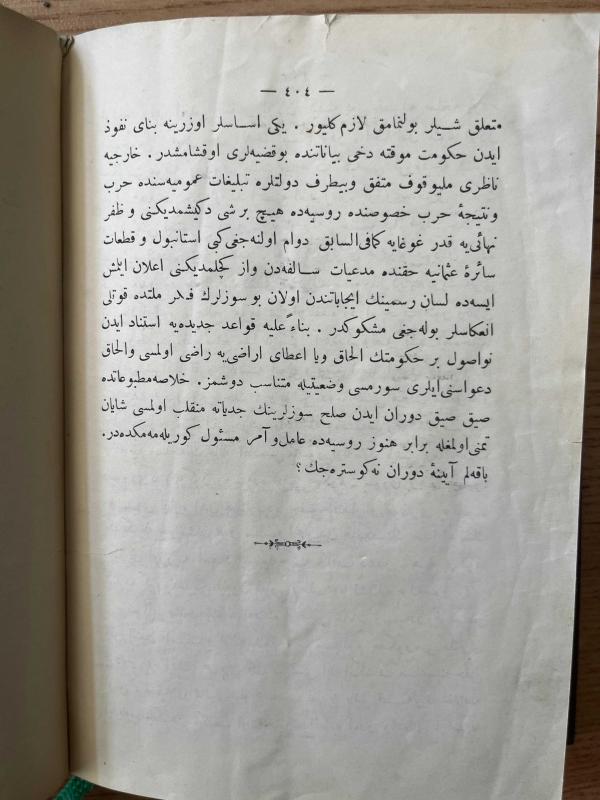 — ٤٠٤ —
متعلق شیلر بولنمامق لازم كلیور . یكی اساسلر اوزرینه بنای نفوذ
ایدن حكومت موقته دخی بیاناتنده بوقضیه‌لری اوقشامشدر . خارجیه
ناظری ملیوقوف متفق وبیطرف دولتلره تبلیغات عمومیه‌سنده حرب
ونتیجهٔ حرب خصوصنده روسیه‌ده هیچ برشی دكیشمدیكنی و ظفر
نهائی‌یه قدر غوغایه كمافی‌السابق دوام اولنه‌جغی كبی استانبول و قطعات
سائرهٔ عثمانیه حقنده مدعیات سالفه‌دن واز كچلمدیكنی اعلان ایلمش
ایسه‌ده لسان رسمینك ایجاباتندن اولان بو سوزلرك فكر ملتده قوتلی
انعكاسلر بوله‌جغی مشكوكدر . بناءً علیه قواعد جدیده‌یه استناد ایدن
نواصول بر حكومتك الحاق ویا اعطای اراضی‌یه راضی اولمسی والحاق
دعواسنی ایلری سورمسی وضعیتیله متناسب دوشمز . خلاصه مطبوعاتده
صیق صیق دوران ایدن صلح سوزلرینك جدیاته منقلب اولمسی شایان
تمنی اولمغله برابر هنوز روسیه‌ده عامل و آمر مسئول كوریله‌مه‌مكده‌در.
باقه‌لم آیینهٔ دوران نه‌كوستره‌جك ؟